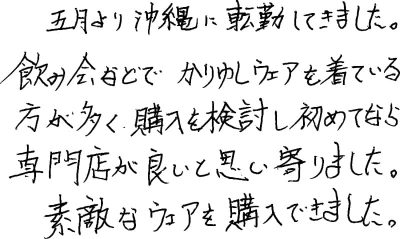 五月より沖縄に転勤してきました。
飲み会などで かりゆしウェアを着ている
方が多く、購入を検討し初めてなら
専門店が良いと思い寄りました。
素敵なウェアを購入できました。